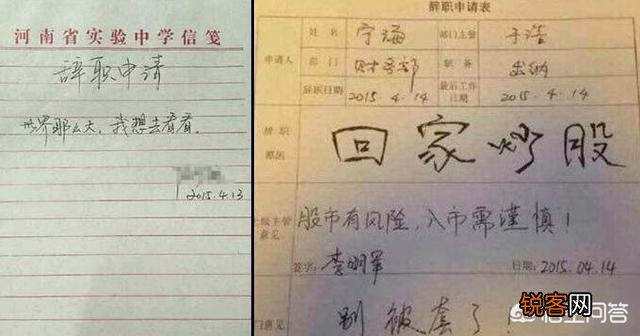 河南省实验中学信笺
辞职申请
世界那么大，我想去看看。
2015.4.13
辞职申请表
申请人
姓名 宁海
部门主管 于浩
部门 财务部
职务 出纳
辞职日期 2015.4.14
最后工作日期 2015.4.14
辞职原因
回家炒股
上级主管意见
股市有风险，入市需谨慎！
签字：李明军 日期：2015.04.14
门意见
别被套了
锐客网
悟空问答